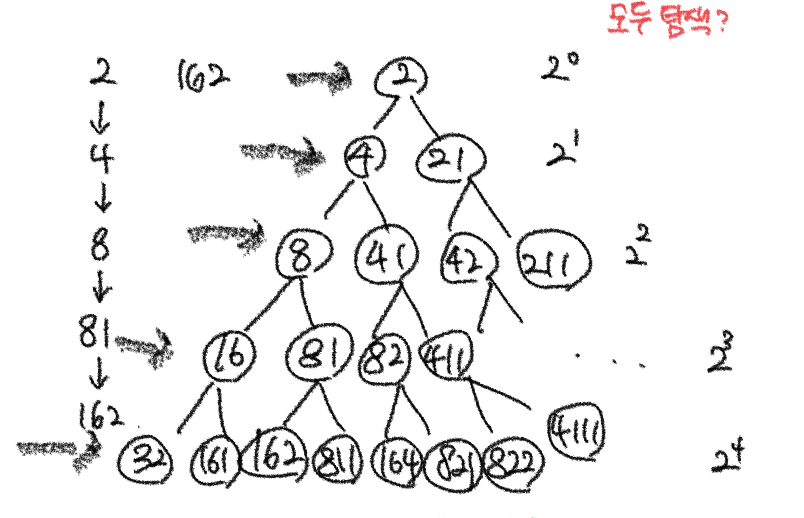 모두 탐색?
2 162 2 2⁰
4 4 21 2¹
8 8 41 42 211 2²
81 16 81 82 411 . . . 2³
162 4111
32 161 162 811 164 821 822 2⁴